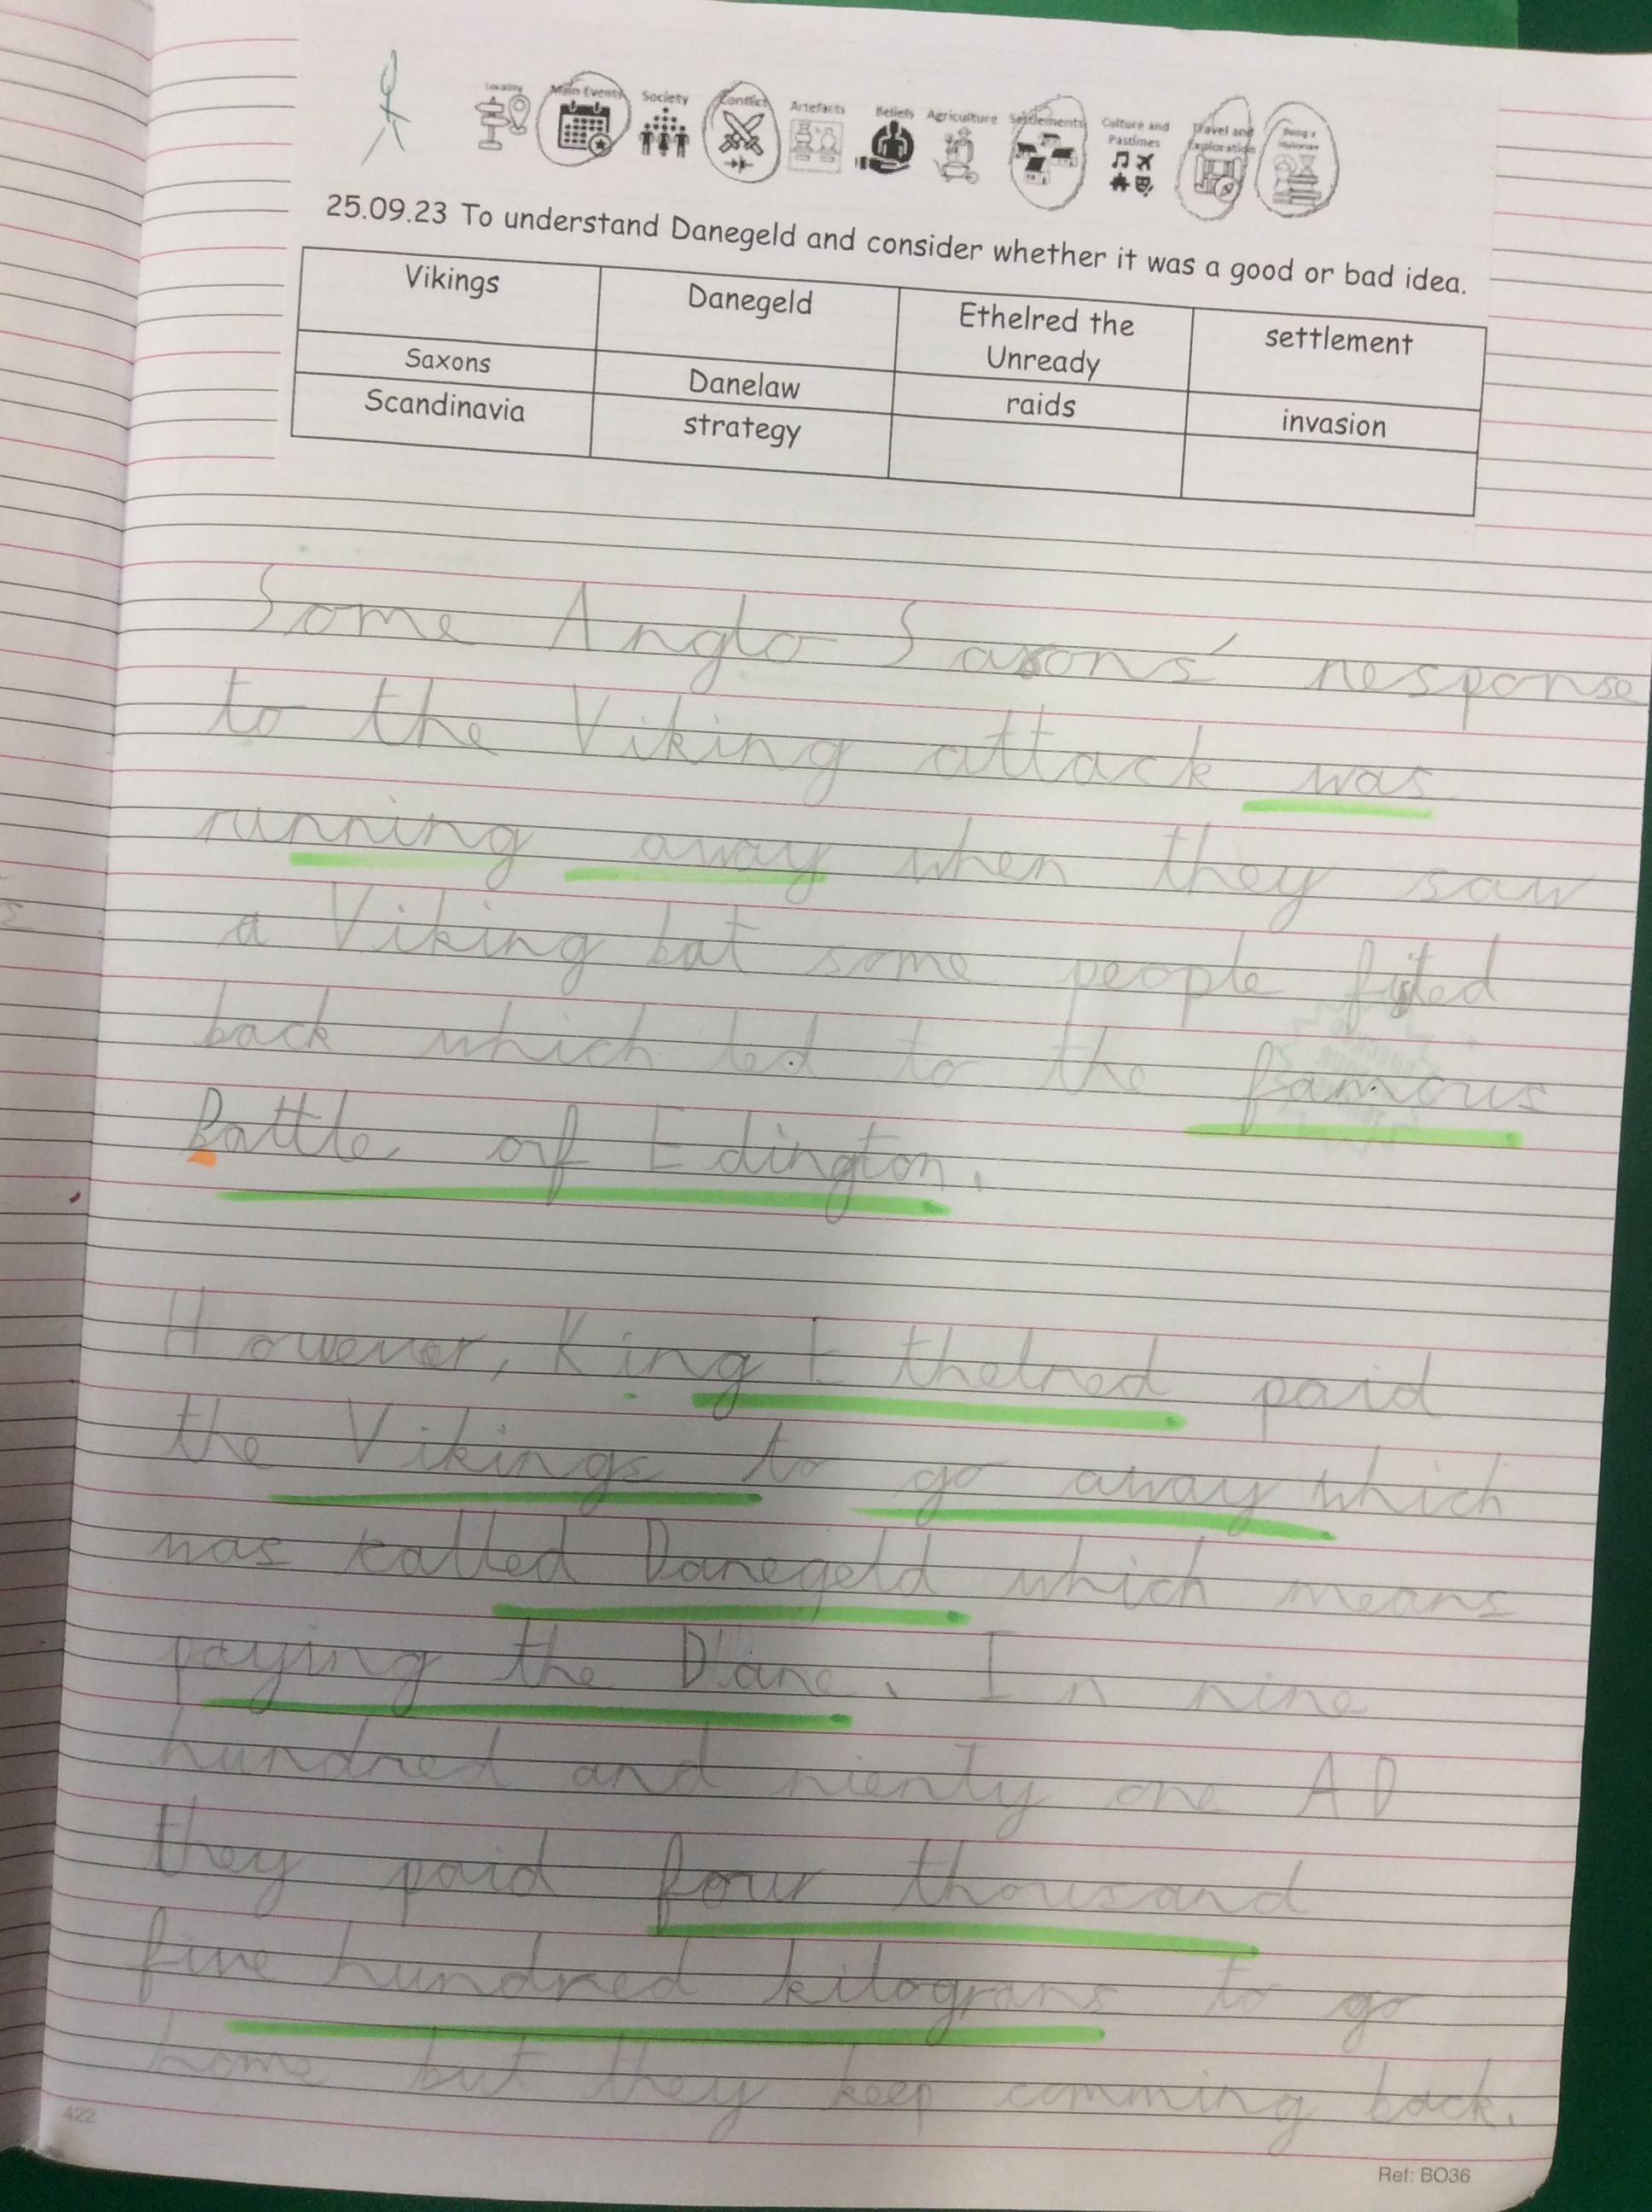 Locality Main Events Society Conflict Artefacts Beliefs Agriculture Settlements Culture and Pastimes Travel and Exploration Being a Historian
25.09.23 To understand Danegeld and consider whether it was a good or bad idea.
Vikings Danegeld Ethelred the Unready settlement
Saxons Danelaw raids invasion
Scandinavia strategy
Some Anglo Saxons' response
to the Viking attack was
running away when they saw
a Viking but some people fited
back which led to the famous
Battle of Edington.
However, King Ethelred paid
the Vikings to go away which
was called Danegeld which means
paying the Dane. In nine
hundred and nienty one AD
they paid four thousand
five hundred kilograms to go
home but they keep comming back.
422
Ref: BO36